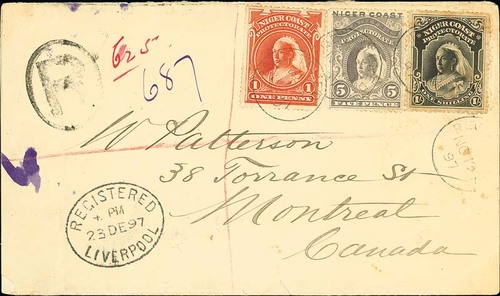 R
625
687
NIGER COAST
PROTECTORATE
1 1
ONE PENNY
NIGER COAST
PROTECTORATE
5 5
FIVE PENCE
NIGER COAST
PROTECTORATE
1/- 1/-
ONE SHILLING
W Patterson
38 Torrance St
Montreal
Canada
REGISTERED
4 PM
23 DE 97
LIVERPOOL
97